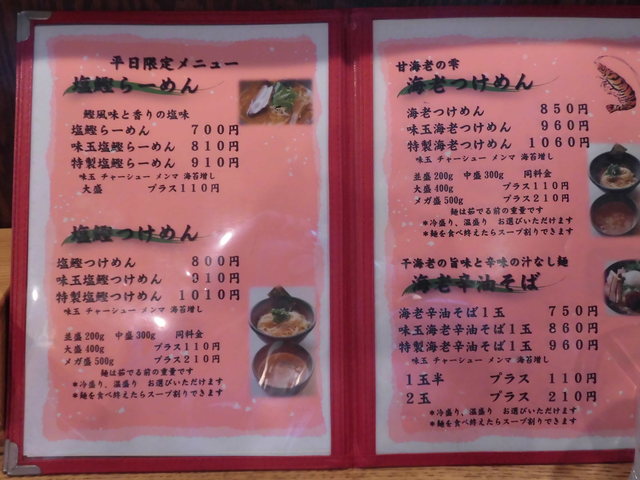 平日限定メニュー
塩鰹らーめん
鰹風味と香りの塩味
塩鰹らーめん 700円
味玉塩鰹らーめん 810円
特製塩鰹らーめん 910円
味玉 チャーシュー メンマ 海苔増し
大盛 プラス110円
塩鰹つけめん
塩鰹つけめん 800円
味玉塩鰹つけめん 910円
特製塩鰹つけめん 1010円
味玉 チャーシュー メンマ 海苔増し
並盛200g 中盛300g 同料金
大盛400g プラス110円
メガ盛500g プラス210円
麺は茹でる前の重量です
*冷盛り、温盛り お選びいただけます
*麺を食べ終えたらスープ割りできます
甘海老の雫
海老つけめん
海老つけめん 850円
味玉海老つけめん 960円
特製海老つけめん 1060円
味玉 チャーシュー メンマ 海苔増し
並盛200g 中盛300g 同料金
大盛400g プラス110円
メガ盛500g プラス210円
麺は茹でる前の重量です
*冷盛り、温盛り お選びいただけます
*麺を食べ終えたらスープ割りできます
干海老の旨味と辛味の汁なし麺
海老辛油そば
海老辛油そば1玉 750円
味玉海老辛油そば1玉 860円
特製海老辛油そば1玉 960円
味玉 チャーシュー メンマ 海苔増し
1玉半 プラス 110円
2玉 プラス 210円
*冷盛り、温盛り お選びいただけます
*麺を食べ終えたらスープ割りできます